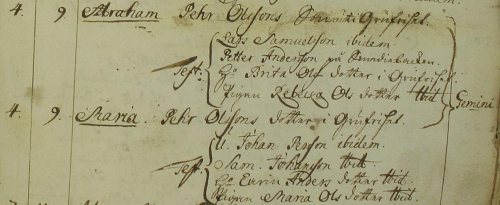 4. 9. Abraham Pehr Olssons Son i Grufriset.
Lars Samuelson ibidem.
Petter Andersson på Sundiabacken.
Test. Hu. Brita Ols dotter i Grufriset.
Pigan Rebecca Ols dotter Ibid.
Gemini
4. 9. Maria. Pehr Olssons dotter i Grufriset.
U. Johan Person ibidem.
Test. Sam. Johansson Ibid.
Hu. Carin Anders dotter Ibid.
Pigan Maria Ols dotter Ibid.